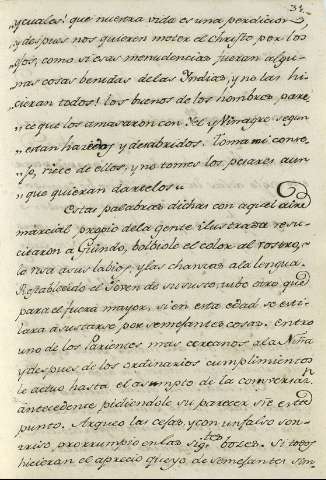 34.
„ y cuales! que nuestra vida es una perdicion
„ y despues nos quieren meter el christo por los
„ ojos, como si esas menudencias fueran algu-
„ nas cosas benidas de las Indias, y no las hi-
„ cieran todos! los buenos de los hombres, pare
„ ce que los amasaron con Yel, y Vinagre segun
„ estan hazedos y desabridos. Toma mi conse
„ jo, riete de ellos, y no tomes los pesares aun
„ que quieran dartelos„
Estas palabras dichas con aquel aire
marcial propio de la gente ilustrada resu-
citaron à Guindo, bolbiole el color al rostro,
la risa à sus labios, y las chanzas à la lengua.
Restablecido el Joven de su susto, tubo otro que
para el fuera mayor, si en esta edad se esti-
lara à sustarse por semejantes cosas. Entro
uno de los Parientes mas cercanos à la Niña
y despues de los ordinarios cumplimientos
le actuo hasta el asumpto de la combersas.n
antecedente pidiendole su parecer sre esta
punto. Arqueo las cejas, y con un falso son-
rriso, prorrumpio en las sig.tes bozes. Si todos
hicieran el aprecio que yo de semejantes sim-